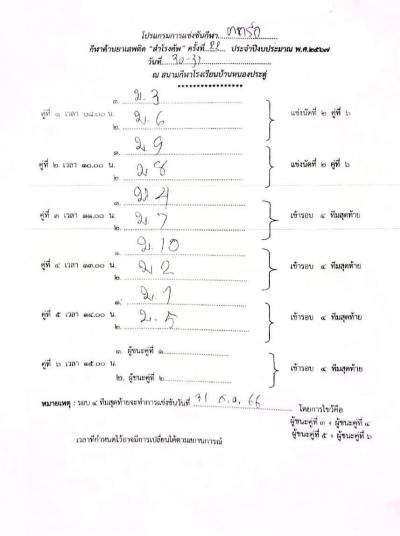 โปรแกรมการแข่งขันกีฬา
กีฬาต้านยาเสพติด "สำโรงคัพ" ครั้งที่ 22 ประจำปีงบประมาณ พ.ศ.๒๕๖๗
วันที่ 30-31
ณ สนามกีฬาโรงเรียนบ้านหนองประดู่
****************
คู่ที่ ๑ เวลา ๐๘.๐๐ น. ๑. ม. 3 ๒. ม. 6 แข่งนัดที่ ๒ คู่ที่ ๖
คู่ที่ ๒ เวลา ๑๐.๐๐ น. ๑. ม. 9 ๒. ม 8 แข่งนัดที่ ๒ คู่ที่ ๖
คู่ที่ ๓ เวลา ๑๑.๐๐ น. ๑. ม 4 ๒. ม. 7 เข้ารอบ ๔ ทีมสุดท้าย
คู่ที่ ๔ เวลา ๑๓.๐๐ น. ๑. ม. 10 ๒. ม 2 เข้ารอบ ๔ ทีมสุดท้าย
คู่ที่ ๕ เวลา ๑๔.๐๐ น. ๑. ม. 1 ๒. ม. 5 เข้ารอบ ๔ ทีมสุดท้าย
คู่ที่ ๖ เวลา ๑๕.๐๐ น. ๑. ผู้ชนะคู่ที่ ๑ ๒. ผู้ชนะคู่ที่ ๒ เข้ารอบ ๔ ทีมสุดท้าย
หมายเหตุ : รอบ ๔ ทีมสุดท้ายจะทำการแข่งขันวันที่ 31 ธ.ค. 66 โดยการไขว้คือ
ผู้ชนะคู่ที่ ๓ + ผู้ชนะคู่ที่ ๔
ผู้ชนะคู่ที่ ๕ + ผู้ชนะคู่ที่ ๖
เวลาที่กำหนดไว้อาจมีการเปลี่ยนได้ตามสถานการณ์